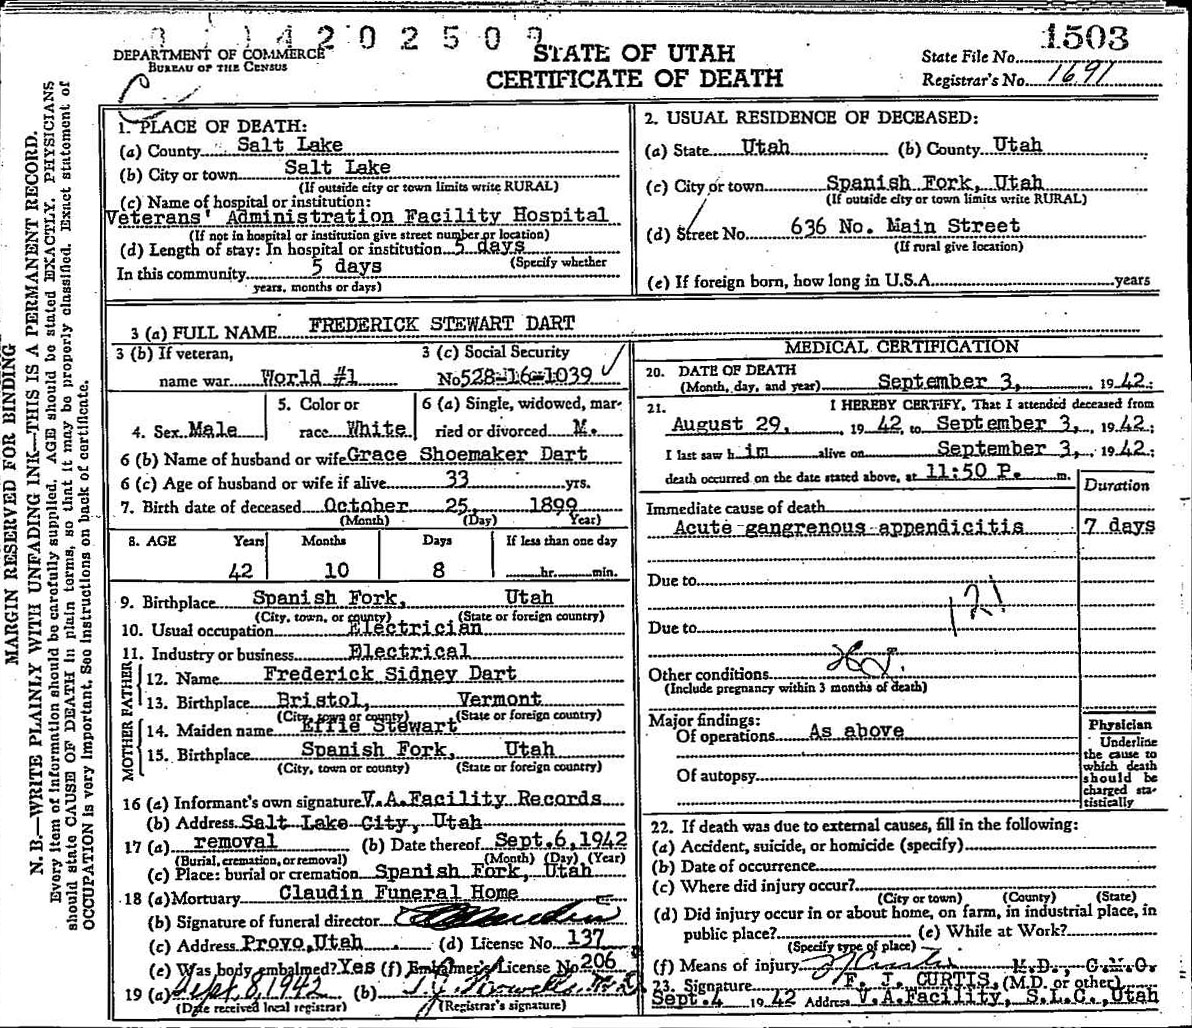 STATE OF UTAH
CERTIFICATE OF DEATH
DEPARTMENT OF COMMERCE
BUREAU OF THE CENSUS
1503
State File No.
Registrar's No. 1691
MARGIN RESERVED FOR BINDING
N. B.—WRITE PLAINLY WITH UNFADING INK—THIS IS A PERMANENT RECORD.
Every item of information should be carefully supplied. AGE should be stated EXACTLY. PHYSICIANS
should state CAUSE OF DEATH in plain terms, so that it may be properly classified. Exact statement of
OCCUPATION is very important. See instructions on back of certificate.
1. PLACE OF DEATH:
(a) County Salt Lake
(b) City or town Salt Lake
(If outside city or town limits write RURAL)
(c) Name of hospital or institution:
Veterans' Administration Facility Hospital
(If not in hospital or institution give street number or location)
(d) Length of stay: In hospital or institution 5 days
(Specify whether
In this community 5 days
years, months or days)
2. USUAL RESIDENCE OF DECEASED:
(a) State Utah (b) County Utah
(c) City or town Spanish Fork, Utah
(If outside city or town limits write RURAL)
(d) Street No. 636 No. Main Street
(If rural give location)
(e) If foreign born, how long in U.S.A. years
3 (a) FULL NAME FREDERICK STEWART DART
3 (b) If veteran,
name war World #1
3 (c) Social Security
No 528-16-1039
4. Sex Male
5. Color or
race White
6 (a) Single, widowed, mar-
ried or divorced M.
6 (b) Name of husband or wife Grace Shoemaker Dart
6 (c) Age of husband or wife if alive 33 yrs.
7. Birth date of deceased October 25, 1899
(Month) (Day) Year)
8. AGE Years Months Days If less than one day
42 10 8 hr. min.
9. Birthplace Spanish Fork, Utah
(City, town, or county) (State or foreign country)
10. Usual occupation Electrician
11. Industry or business Electrical
FATHER
12. Name Frederick Sidney Dart
13. Birthplace Bristol, Vermont
(City, town or county) (State or foreign country)
MOTHER
14. Maiden name Effie Stewart
15. Birthplace Spanish Fork, Utah
(City, town or county) (State or foreign country)
16 (a) Informant's own signature V.A.Facility Records
(b) Address Salt Lake City, Utah
17 (a) removal (b) Date thereof Sept.6,1942
(Burial, cremation, or removal) (Month) (Day) (Year)
(c) Place: burial or cremation Spanish Fork, Utah
18 (a) Mortuary Claudin Funeral Home
(b) Signature of funeral director
(c) Address Provo,Utah (d) License No. 137
(e) Was body embalmed? Yes (f) Embalmer's License No 206
19 (a) Sept. 8, 1942 (b)
(Date received local registrar) (Registrar's signature)
MEDICAL CERTIFICATION
20. DATE OF DEATH
(Month, day, and year) September 3, 1942:
21. I HEREBY CERTIFY, That I attended deceased from
August 29, 1942 to September 3, 1942;
I last saw him alive on September 3, 1942;
death occurred on the date stated above, at 11:50 P. m.
Duration
Immediate cause of death
Acute gangrenous appendicitis 7 days
Due to
121
Due to
Other conditions
(Include pregnancy within 3 months of death)
Major findings:
Of operations As above
Of autopsy
Physician
Underline
the cause to
which death
should be
charged sta-
tistically
22. If death was due to external causes, fill in the following:
(a) Accident, suicide, or homicide (specify)
(b) Date of occurrence
(c) Where did injury occur?
(City or town) (County) (State)
(d) Did injury occur in or about home, on farm, in industrial place, in
public place? (e) While at Work?
(Specify type of place)
(f) Means of injury M.D., C.M.O.
23. Signature F. J. CURTIS, (M.D. or other)
Sept.4 1942 Address V.A.Facility, S.L.C.,Utah